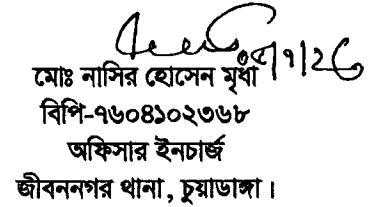 ০৫/১/২৬
মোঃ নাসির হোসেন মৃধা
বিপি-৭৬০৪১০২৩৬৮
অফিসার ইনচার্জ
জীবননগর থানা, চুয়াডাঙ্গা।